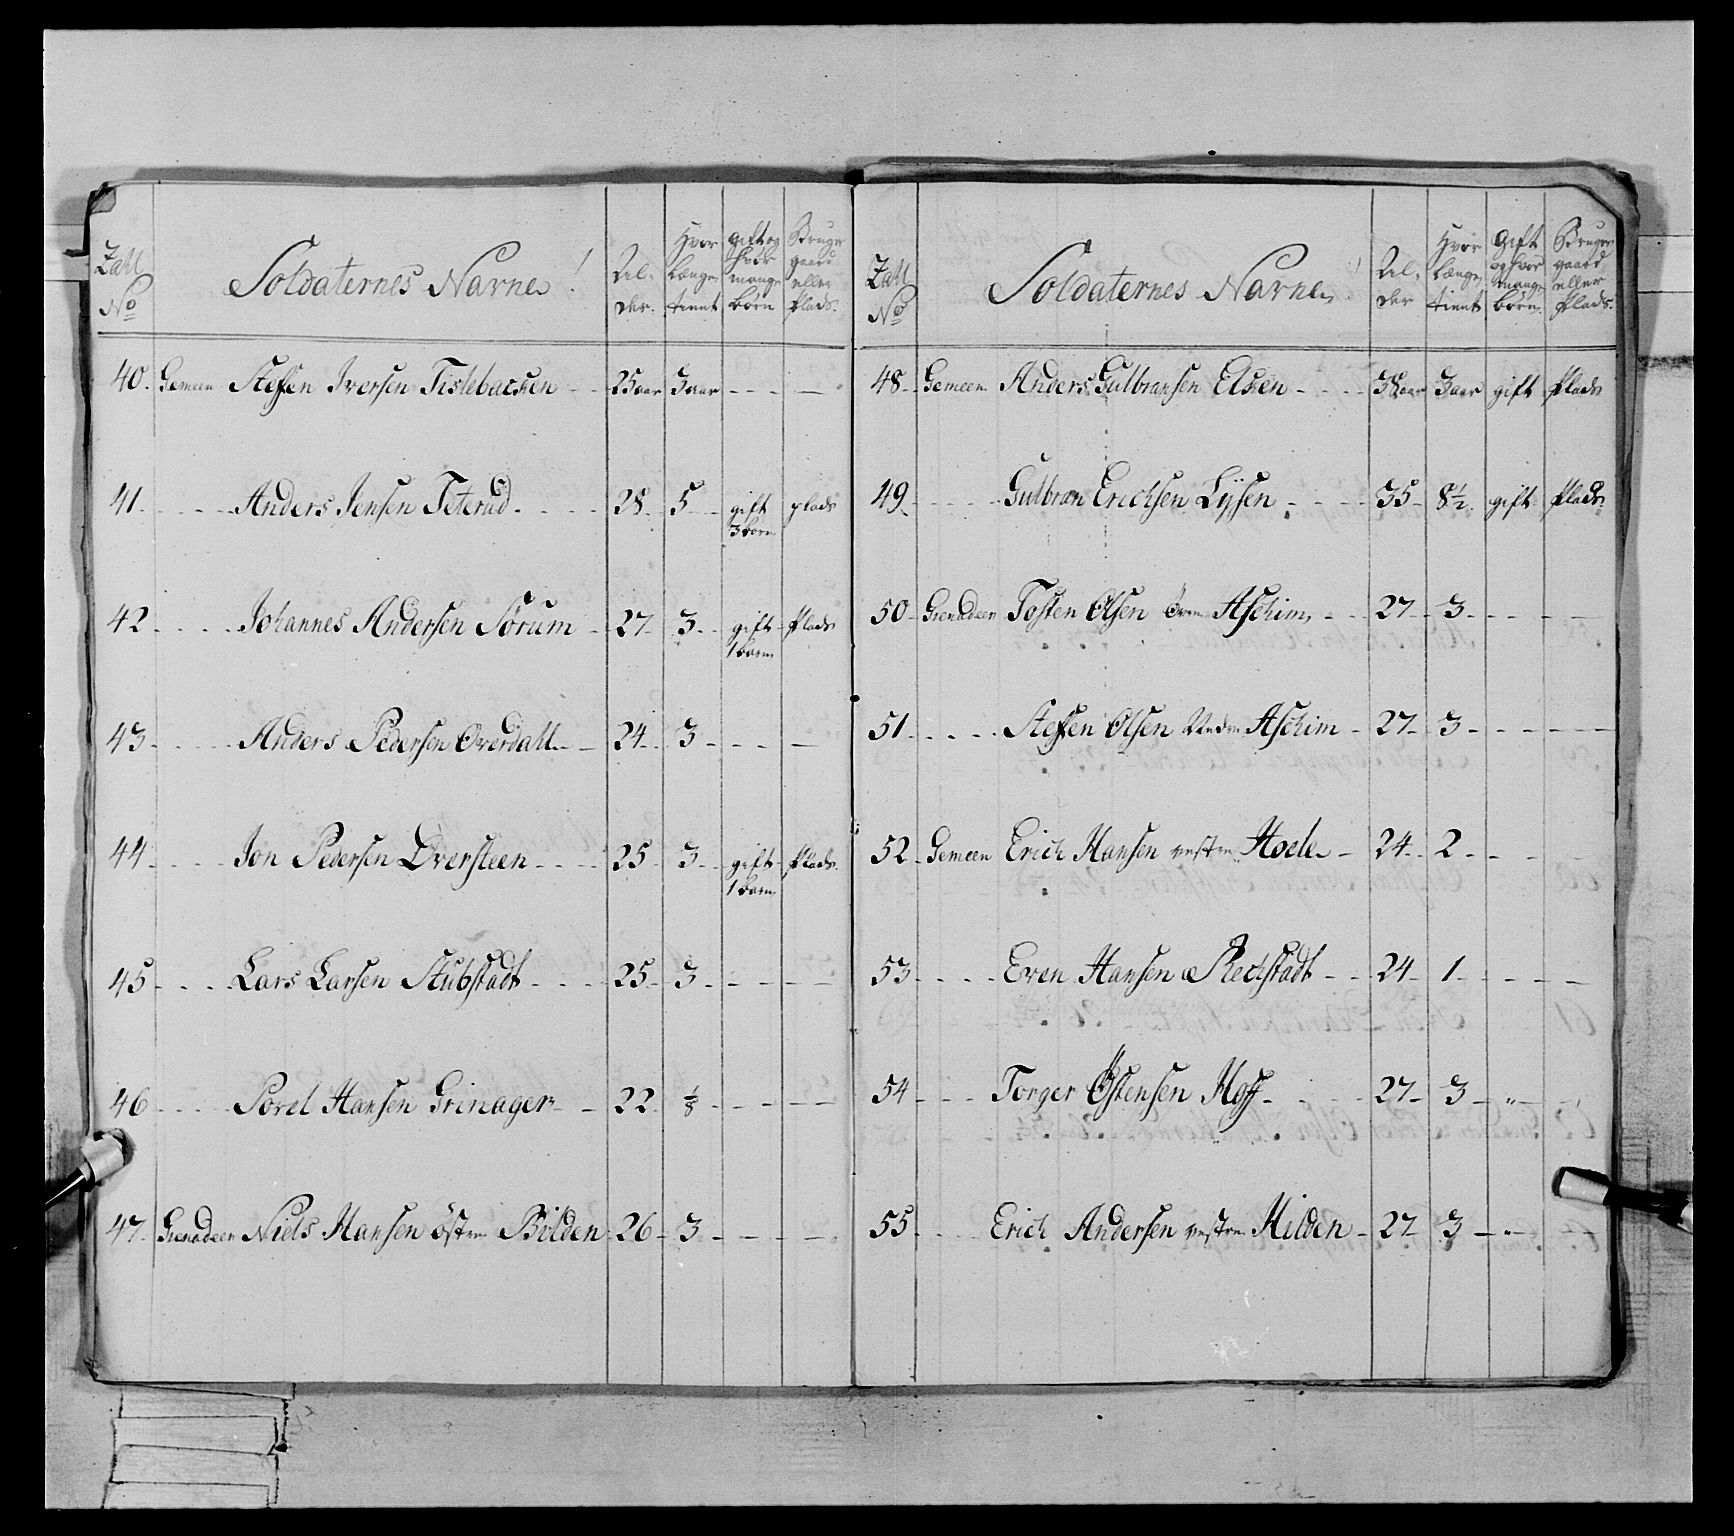 Zahl No
Soldaternes Navne
Alder.
Hvor længe tient
gift og hvor mange børn
Bruger gaard eller Plads.
40. Gemeen Steffen Iversen Tislebachen 25 aar 3 aar
41. Anders Jensen Teterud. 28. 5 gift plads
3 børn
42. Johannes Andersen Sørum 27 3 gift Plads
1 barn
43. Anders Pedersen Overdall 24 3
44. Jon Pedersen Dversteen 25 3 gift Plads.
1 barn
45. Lars Larsen Stubstadt 25 3
46. Povel Hansen Grinager 22
47. Grenadeer Niels Hansen østre Bilden 26 3
Zahl No
Soldaternes Navne
Alder
Hvor længe tient
Gift og hvor mange børn.
Bruger gaard eller Plads.
48. Gemeen Anders Gulbransen Elken 38 aar 3 aar gift Plads
49. Gulbran Erichsen Lysen 35 8½ gift Plads.
50. Grenadeer Tosten Olsen Øvre Aschim 27 3
51. Steffen Olsen Nedre Aschim 27 3
52. Gemeen Erich Hansen vestre Hoele 24 2
53. Even Hansen Rechstadt 24 1
54. Torger Østensen Hoff 27 3 "
55. Erich Andersen vestre Hilden 27 3 "